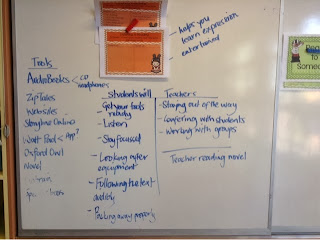 - helps you
learn expression
- entertained
Tools
Audio Books < CD
headphones
Zip Tales
Websites
Storyline Online
Want Read < App?
Oxford Owl
Novel
Students will
- Get your tools
ready
- Listen
- Stay focused
- Looking after
equipment
- Following the text
audibly
- Packing away properly
Teachers
- Staying out of the way
- Conferring with students
- Working with groups
Teacher reading novel
to
Someone